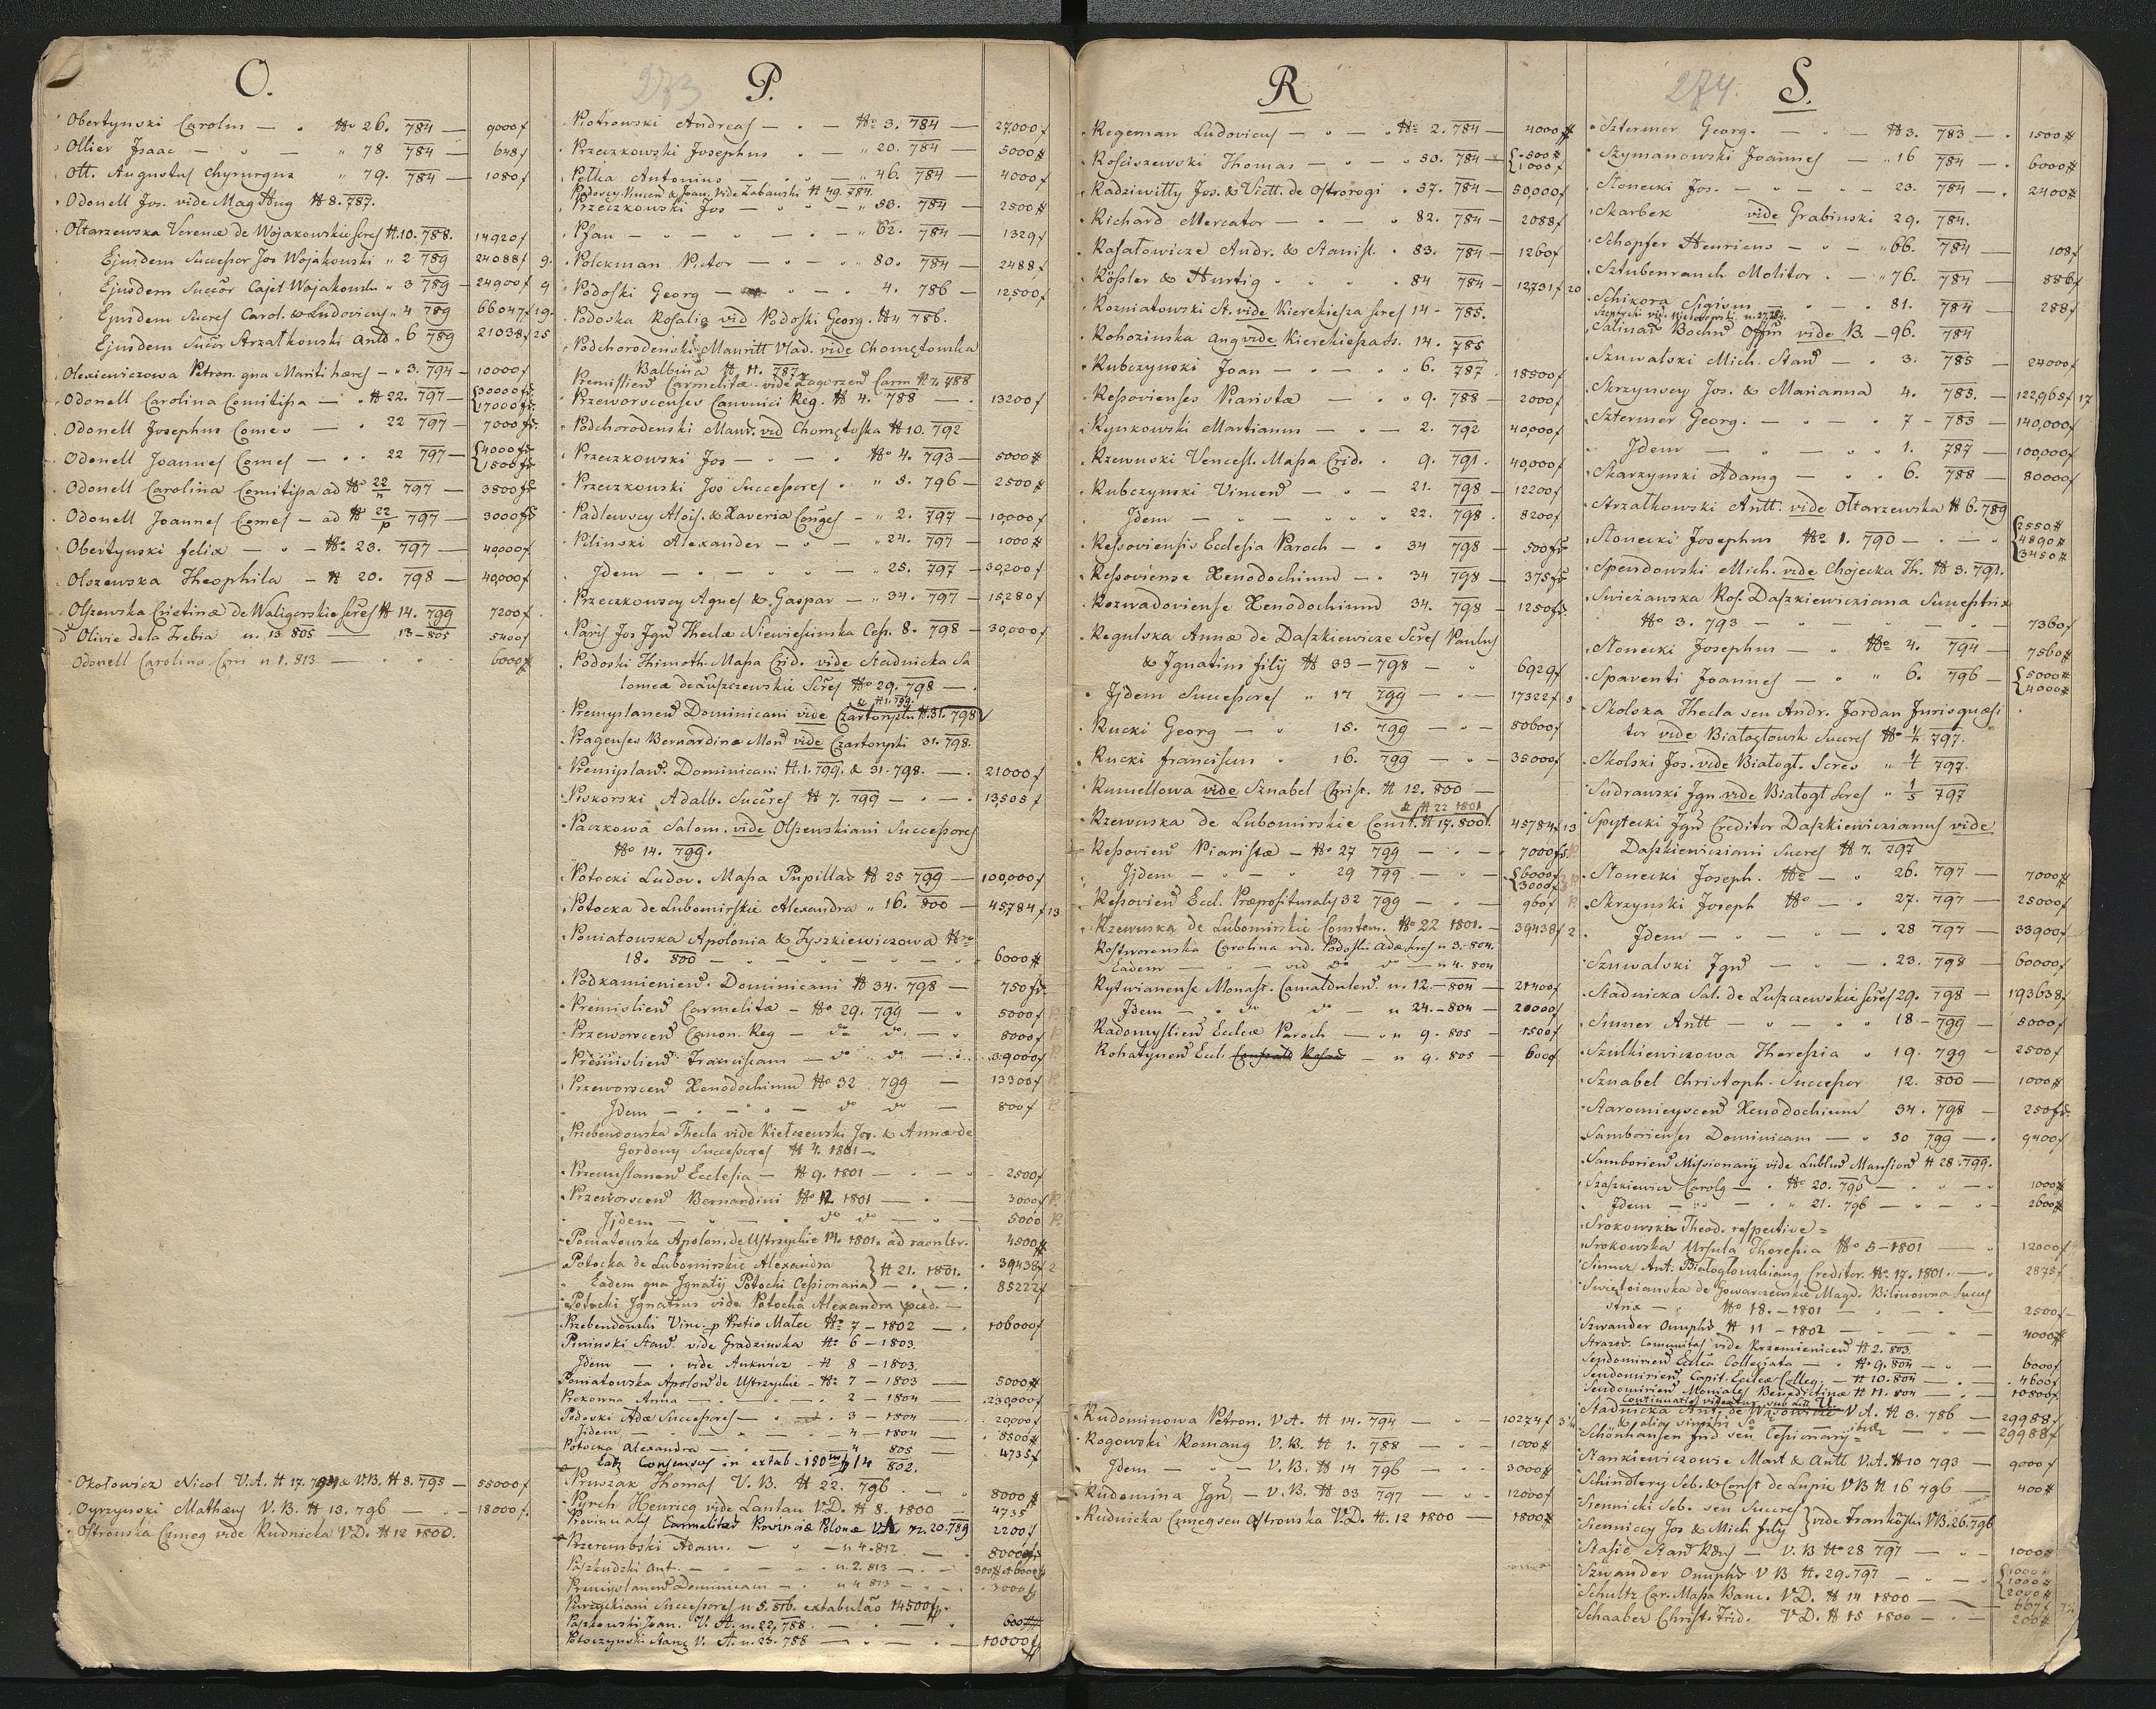 O.
Obertynski Carolus — . No 26. 784 — 9000 f
Ollier Isaac — " — " 78 784 — 648 f
Ott. Augustus Chyrurgus " 79. 784 — 1080 f
Odonell Jos. vide Mag Hug # 8. 787.
Ołtarzewska Verenæ de Wojakowskie scres # 10. 788. 14920 f
Ejusdem Successor Jos Wojakowski " 2 789 24088 f 9.
Ejusdem Succor Cajet Wojakowski " 3 789 — 24900 f 9
Ejusdem Sucres Carol. & Ludovicus " 4 789 66047 f 19.
Ejusdem Succor Strzałkowski Antd " 6 789 21038 f 25
Olexiewiczowa Petron. qua Mariti hæres — " 3. 794 — 10000 f
Odonell Carolina Comitissa — . # 22. 797 — 30000 fr. 17000 fr.
Odonell Josephus Comes — . 22 797 — 7000 fr.
Odonell Joannes Comes — . . 22 797 — 4000 fr 1500 fr
Odonell Carolina Comitissa ad No 22/n 797 — 3800 fr
Odonell Joannes Comes — ad # 22/p 797 — 3000 fr
Obertynski Felix — . — No 23. 797 — 40000 f
Olszewska Theophila — # 20. 798 — 40,000 f
Olszewska Cristinæ de Waligorskie scres # 14. 799 7200 f.
d'Olivie de la Trebia n. 13 805 — 13 — 805 5400 f
Odonell Carolina Com n 1. 813 — . . 6000 #
Okołowicz Nicol V.A. # 17. 794 & V.B. # 8. 795 — 55000 f
Oyrzynski Mathæus V.B. # 13. 796 — . — 18000 f.
Ostrowska Cuneg vide Rudnicka V.D. # 12 1800.
273
P.
Piotrowski Andreas — . — No 3. 784 — 27,000 f
Przeczkowski Josephus . — " 20. 784 — 5000 #
Pełka Antonius — . . — " 46. 784 — 4000 f
Podowscy Vincen & Joan. vide Zabawski # 49. 784.
Przeczkowski Jos — . . — " 53. 784 — 2500 #
Pfau — . . — . — " 62. 784 — 1329 f
Polckman Victor — . . " 80. 784 — 2488 f
Podoski Georg — . — 4. 786 — 12,500 f
Podoska Rosalia vid Podoski Georg. # 4 786.
Podchorodenski Mauritt Vlad. vide Chomętowska
Balbina # 11. 787.
Premislien Carmelitæ. vide Zagorzen Carm # 7. 788
Przeworscenses Canonici Reg. # 4. 788 — . 13200 f
Podchorodenski Maur. vid Chomętoska # 10. 792
Przeczkowski Jos — . — . No 4. 793 — 5000 #
Przeczkowski Jos Successores . " 5. 796 — 2500 #
Padlewscy Alois. & Xaveria Conges — " 2. 797 — 10,000 f
Piliński Alexander — . — " 24. 797 — 1000 #
Idem — . — . — " 25. 797 — 30,200 f
Przeczkowscy Agnes & Gaspar — " 34. 797 — 15,280 f
Paris Jos Ign Theclæ Niewiesinska Cess. 8. 798 — 30,000 f
Podoski Thimoth. Massa Crid. vide Stadnicka Sa
lomea de Łuszczewskie Scres No 29. 798 — .
& # 1. 799.
Premyslanen Dominicani vide Czartoryski # 31. 798
Pragenses Bernardinæ Mon vide Czartoryski 31. 798.
Premyslan. Dominicani # 1. 799. & 31. 798. — . 21000 f
Piskorski Adalb. Succres # 7. 799 — . — . 13,505 f
Paczkowa Salom. vide Olszewskiani Successores
No 14. 799.
Potocki Ludov. Massa Pupillar # 25 799 — 100,000 f
Potocka de Lubomirskie Alexandra " 16. 800 — 45,784 f 13
Poniatowska Apolonia & Tyszkiewiczowa No
18. 800 — . — . — . — . 6000 #
Podkamienien. Dominicani # 34. 798 — 750 fr.
Premislien Carmelitæ — No 29. 799 — " 5000 f R.
Przeworscen Canon. Reg — do do. — " 8000 f R
Premislien. Franciscani — do " do — . . 39000 f R
Przeworscen Xenodochium No 32 799 — 13300 f R
Idem — . — . — do do — 800 f R
Przebendowska Thecla vide Kiełczewski Jos. & Annæ de
Gordony Successores # 7. 1801 — .
Przemislanen Ecclesia — # 9. 1801 — . — . 2500 f
Przeworscen Bernardini No 12. 1801 — . — 3000 f R.
Ijdem — . — . do do — . — 5000 R.
Poniatowska Apolon. de Ustrzyckie 14. 1801. ad racntor. 4500 #
Potocka de Lubomirskie Alexandra } # 21. 1801. . 39438 f 2
Eadem qua Ignatij Potocki Cessionaria } — . — . 85222 f
Potocki Ignatius vide Potocka Alexandra præd. —
Przebendowski Vinc. p Pretio Matec No 7 — 1802 — . 106000 f
Pininski Stan. vide Gradzinska No 6 — 1803.
Idem — . vide Ankwicz — # 8 — 1803.
Poniatowska Apolon de Ustrzyckie — No 7 — 1803 — 5000 #
Prokowna Anna — . — . — 2 — 1804 — . 230000 f
Podoski Adæ Successores — . — . 3 — 1804 . 20,000 f
Ijdem — . — . — . 4 — 1804 — . 8500 #
Potocka Alexandra — . — " 805 — 4735 f
Lat; Consensus in extab — 150 m f 14 802.
Pruszak Thomas V.B. # 22. 796 . — " 8000 #
Pyrch Henricq vide Lantau V.D. # 8. 1800 — 4735
Provincialis Carmelitar Provinciæ Polonæ V.A. n. 20. 789 2200 f
Przerembski Adam. — . — n 4. 812 — . 80000 fr
Paszkudzki Ant. — . — . n. 2. 813 — . 300 # & 6000 f
Premyslanen Dominicani — . n 4 813 — . — . 3000 f
Purzyckiani Successores n 5. 816. extabulao 14500 f.
Paszkowski Joan. V. A. n. 22, 788. — . — 600 #
Płoczynski Stanq V. A. n. 23. 788 — . — . — 10000 f
R
Regeman Ludovicus — . — . No 2. 784 — 4000 #
Rosciszewski Thomas — . — . 50. 784 — 500 # 1000 f
Radziwiłły Jos. & Vict. de Ostrorogi . 57. 784 — 50,000 f
Richard Mercator — . — . 82. 784 — 2088 f
Rosałowicze Andr. & Stanisl. . 83. 784 — 1260 f
Rössler & Hurtig . . . . . 84 784 — 12,731 f 20
Rozniatowski St. vide Kierekiesza scres 14 — 785.
Rohozinska Ang vide Kierekiesza s. 14. 785
Rubczynski Joan — . . . 6. 787 . 18500 f
Ressovienses Piaristæ — . . 9. 788 — 2000 f
Rynkowski Martianus — . — 2. 792 40,000 f
Rzewuski Vencesl. Massa Crid. . 9. 791. 40,000 f
Rubczynski Vincen — . — 21. 798 — 12200 f
Idem — . — . . . 22. 798 . 8200 f
Ressoviensis Ecclesia Paroch — . 34 798 — 500 fr
Ressoviense Xenodochium — . 34 798 — 375 fr
Rozwadoviense Xenodochium 34. 798 — 1250 fr.
Regulska Annæ de Daszkiewicze Scres Paulus
& Ignatius filij # 33 — 798 — . 6929 f
Ijdem Successores " 17 799 — . — 17322 f 3
Rucki Georg — . 15. 799 — . — 80600 f
Rucki Franciscus . 16. 799 — . — 35000 f
Rumellowa vide Sznabel Chrisp. # 12. 800 —
& # 22 1801
Rzewuska de Lubomirskie Const. # 17. 800. 45784 f 13
Ressovien Piaristæ — No 27 799 — . — . 7000 fr R
Ijdem — . — . 29 799 — . — 6000 f 3000 f
Ressovien Eccl. Præpositurals 32 799 — . — 960 f R
Rzewuska de Lubomirskie Constan. No 22 1801. — 39438 f 2
Rostworowska Carolina vid. Podoski Adæ Scres n 3. — 804.
Eadem — . — vid do do — n 4. 804
Rytwianense Monast. Camaldulen. n. 12. — 804 — 21400 f
Idem — . do do — n 24. — 804 — 20000 f
Radomyslien Ecclæ Paroch — . n 9. 805 — 1500 f
Rohatynen Eccl. — n 9. 805 — 6000 f
Rudominowa Petron. V.A. # 14. 794 — . — 10274 f 3¼
Rogowski Romanq V.B. # 1. 788 — . — 1000 #
Idem — . — V.B. # 14 796 — . — 3000 #
Rudomina Ign — V.B. # 33 797 — . 12000 f
Rudnicka Cuneg seu Ostrowska V.D. # 12 1800 — 1800 #
274.
S.
Sztermer Georg. — . — # 3. 783 — . 1500 #
Szymanowski Joannes — . 16 784 — . 6000 #
Słonecki Jos. — . — . — 23. 784 — . 2400 #
Skarbek vide Grabinski 29. 784.
Schopfer Henricus — . — " 66. 784 — 108 f
Sztubenrauch Molitor . — " 76. 784 — 886 f
Schikora Sigism — . — 81. 784 — 288 f
Salinar Bochn Offm vide B. — 96. 784
Szuwalski Mich. Stan — . 3. 785 — 24000 f
Skrzynscy Jos. & Marianna 4. 785. — 122,965 f 17
Sztermer Georg. — . — . 7 — 785 — 140,000 f
Idem — . — . — . 1. 787 — 100,000 f
Skarzynski Adamq — . — . 6. 788 — 80000 f
Strzałkowski Antt. vide Ołtarzewska # 6. 789
Słonecki Josephus No 1. 790 — . — . 2550 # 4890 # 3450 #
Spendowski Mich. vide Chojecka Th. # 3. 791.
Swiezawska Ros. Daszkiewicziana Successtrix
No 3. 793 — . — . — . — 7360 f
Słonecki Josephus — . No 4. 794 — 7560 #
Spaventi Joannes — . " 6. 796 — 5000 # 4000 #
Skolska Thecla seu Andr. Jordan Jurisquæsi
tor vide Białogłowsk Sucres No 1/2 797.
Skolski Jos. vide Białogł. Scres " 1/4 797.
Sudrawski Ign vide Białogł Scres " 1/5 797
Spytecki Ign Creditor Daszkiewiczianus vide
Daszkiewicziani Sucres # 7. 797
Słonecki Joseph. No — . 26. 797 — 7000 #
Skrzynski Joseph No — . 27. 797 — 25000 f
Idem — . — . — . 28 797 — 33900 f
Szuwalski Ign — . — . 23. 798 — 60000 f
Stadnicka Sal. de Łuszczewskie Scres 29. 798 — 193638 f
Sumer Antt — . — . . 18 — 799 — 5000 f
Szulkiewiczowa Theressia . 19. 799 — 2500 f
Sznabel Christoph. Successor 12. 800 — 1000 #
Staromieyscen Xenodochium 34. 798 — 250 fr.
Samborienses Dominicani — . 30 799 — . 9400 f
Samborien Missionarij vide Lublin Mansion # 28. 799.
Szaszkiewicz Carolq — . No 20. 796 — . — . — 1000 #
Idem — . — . " 21. 796 — . — . — 2600 #
Srokowski Theod. respective =
Srokowska Ursula Theressia No 5 — 1801 — . 12000 f
Sumer Ant. Białogłowskianq Creditor. No 17. 1801. — . 2875 f
Swiętosławska de Joworzewskie Magd. Bilinowna Succes
strix — . No 18. — 1801 — . — . 2500 f
Szwander Onuphr # 11 — 1802 — . — . 4000 #
Strazov. Comunitas vide Krzemienicen # 2. 803.
Sendomirien Ecclæ Collegiata — . No 9. 804 — . — 6000 f
Sendomirien. Capit. Ecclæ Colleg. — # 10. 804 — . 4600 f
Sendomirien Moniales Benedictinæ # 11. 804 — . 10800 f
Continuatio videatur sub litt. U.
Stadnicka Ant. de Wąsowicze V.A. # 3. 786 — 29988 f
Schönhausen Frid seu Cessionarij — . — 29988 f
Stankiewiczowie Mart & Antt V.A. # 10 793 — 9000 f
Schindlery Seb. & Const de Lupie V B # 16 796 — 400 #
Siennicki Seb. seu Sucres
Siennicy Jos & Mich filij } vide Frankoski VB. 26. 796
Stasic Stan Xdz — V. B No 28 797 — . — 1000 #
Szwander Onuphr V B # 29. 797 — . 1000 # 1000 #
Schultz Car. Massa Banc. V.D. # 14 1800 — 2000 # 607 f
Schaaber Christ. Frid. V.D. # 15 1800 — . — 200 #